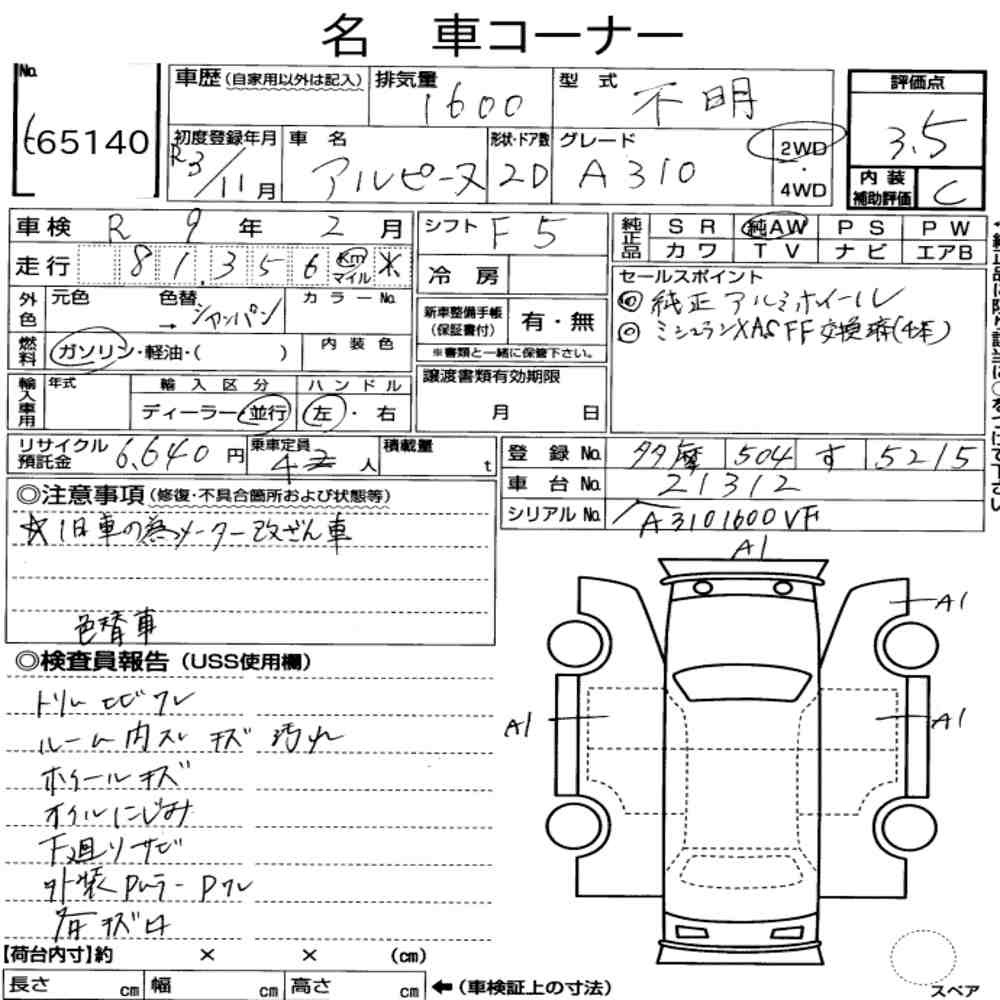 名 車コーナー
No.
665140
車歴(自家用以外は記入)
排気量
1600
型式
不明
評価点
3.5
初度登録年月
R3/11月
車名
アルピーヌ
形状・ドア数
2D
グレード
A310
2WD
・
4WD
内装
補助評価
C
車検 R 9 年 2 月
走行 81,356 Km マイル *
外色
元色
色替
→ シャンパン
カラーNo.
燃料
ガソリン・軽油・( )
内装色
輸入車用
年式
輸入区分
ディーラー・並行
ハンドル
左・右
シフト F5
冷房
新車整備手帳
(保証書付)
有・無
※書類と一緒に保管下さい。
譲渡書類有効期限
月 日
純正品
SR 純AW PS PW
カワ TV ナビ エアB
セールスポイント
◎ 純正アルミホイール
◎ ミシュランXAS FF 交換済(4本)
リサイクル預託金 6,640 円
乗車定員 4 人
積載量 t
登録No. 多摩 504 す 5215
車台No. 21312
シリアルNo. A3101600VF
◎注意事項(修復・不具合箇所および状態等)
☆旧車の為メーター改ざん車
色替車
◎検査員報告(USS使用欄)
トリム エビ ワレ
ルーム内スレ キズ 汚れ
ホイールキズ
オイルにじみ
下廻りサビ
外装Pムラ-Pワレ
各キズ凹
A1
A1
A1
A1
【荷台内寸】約 × × (cm)
長さ cm 幅 cm 高さ cm ←(車検証上の寸法)
スペア